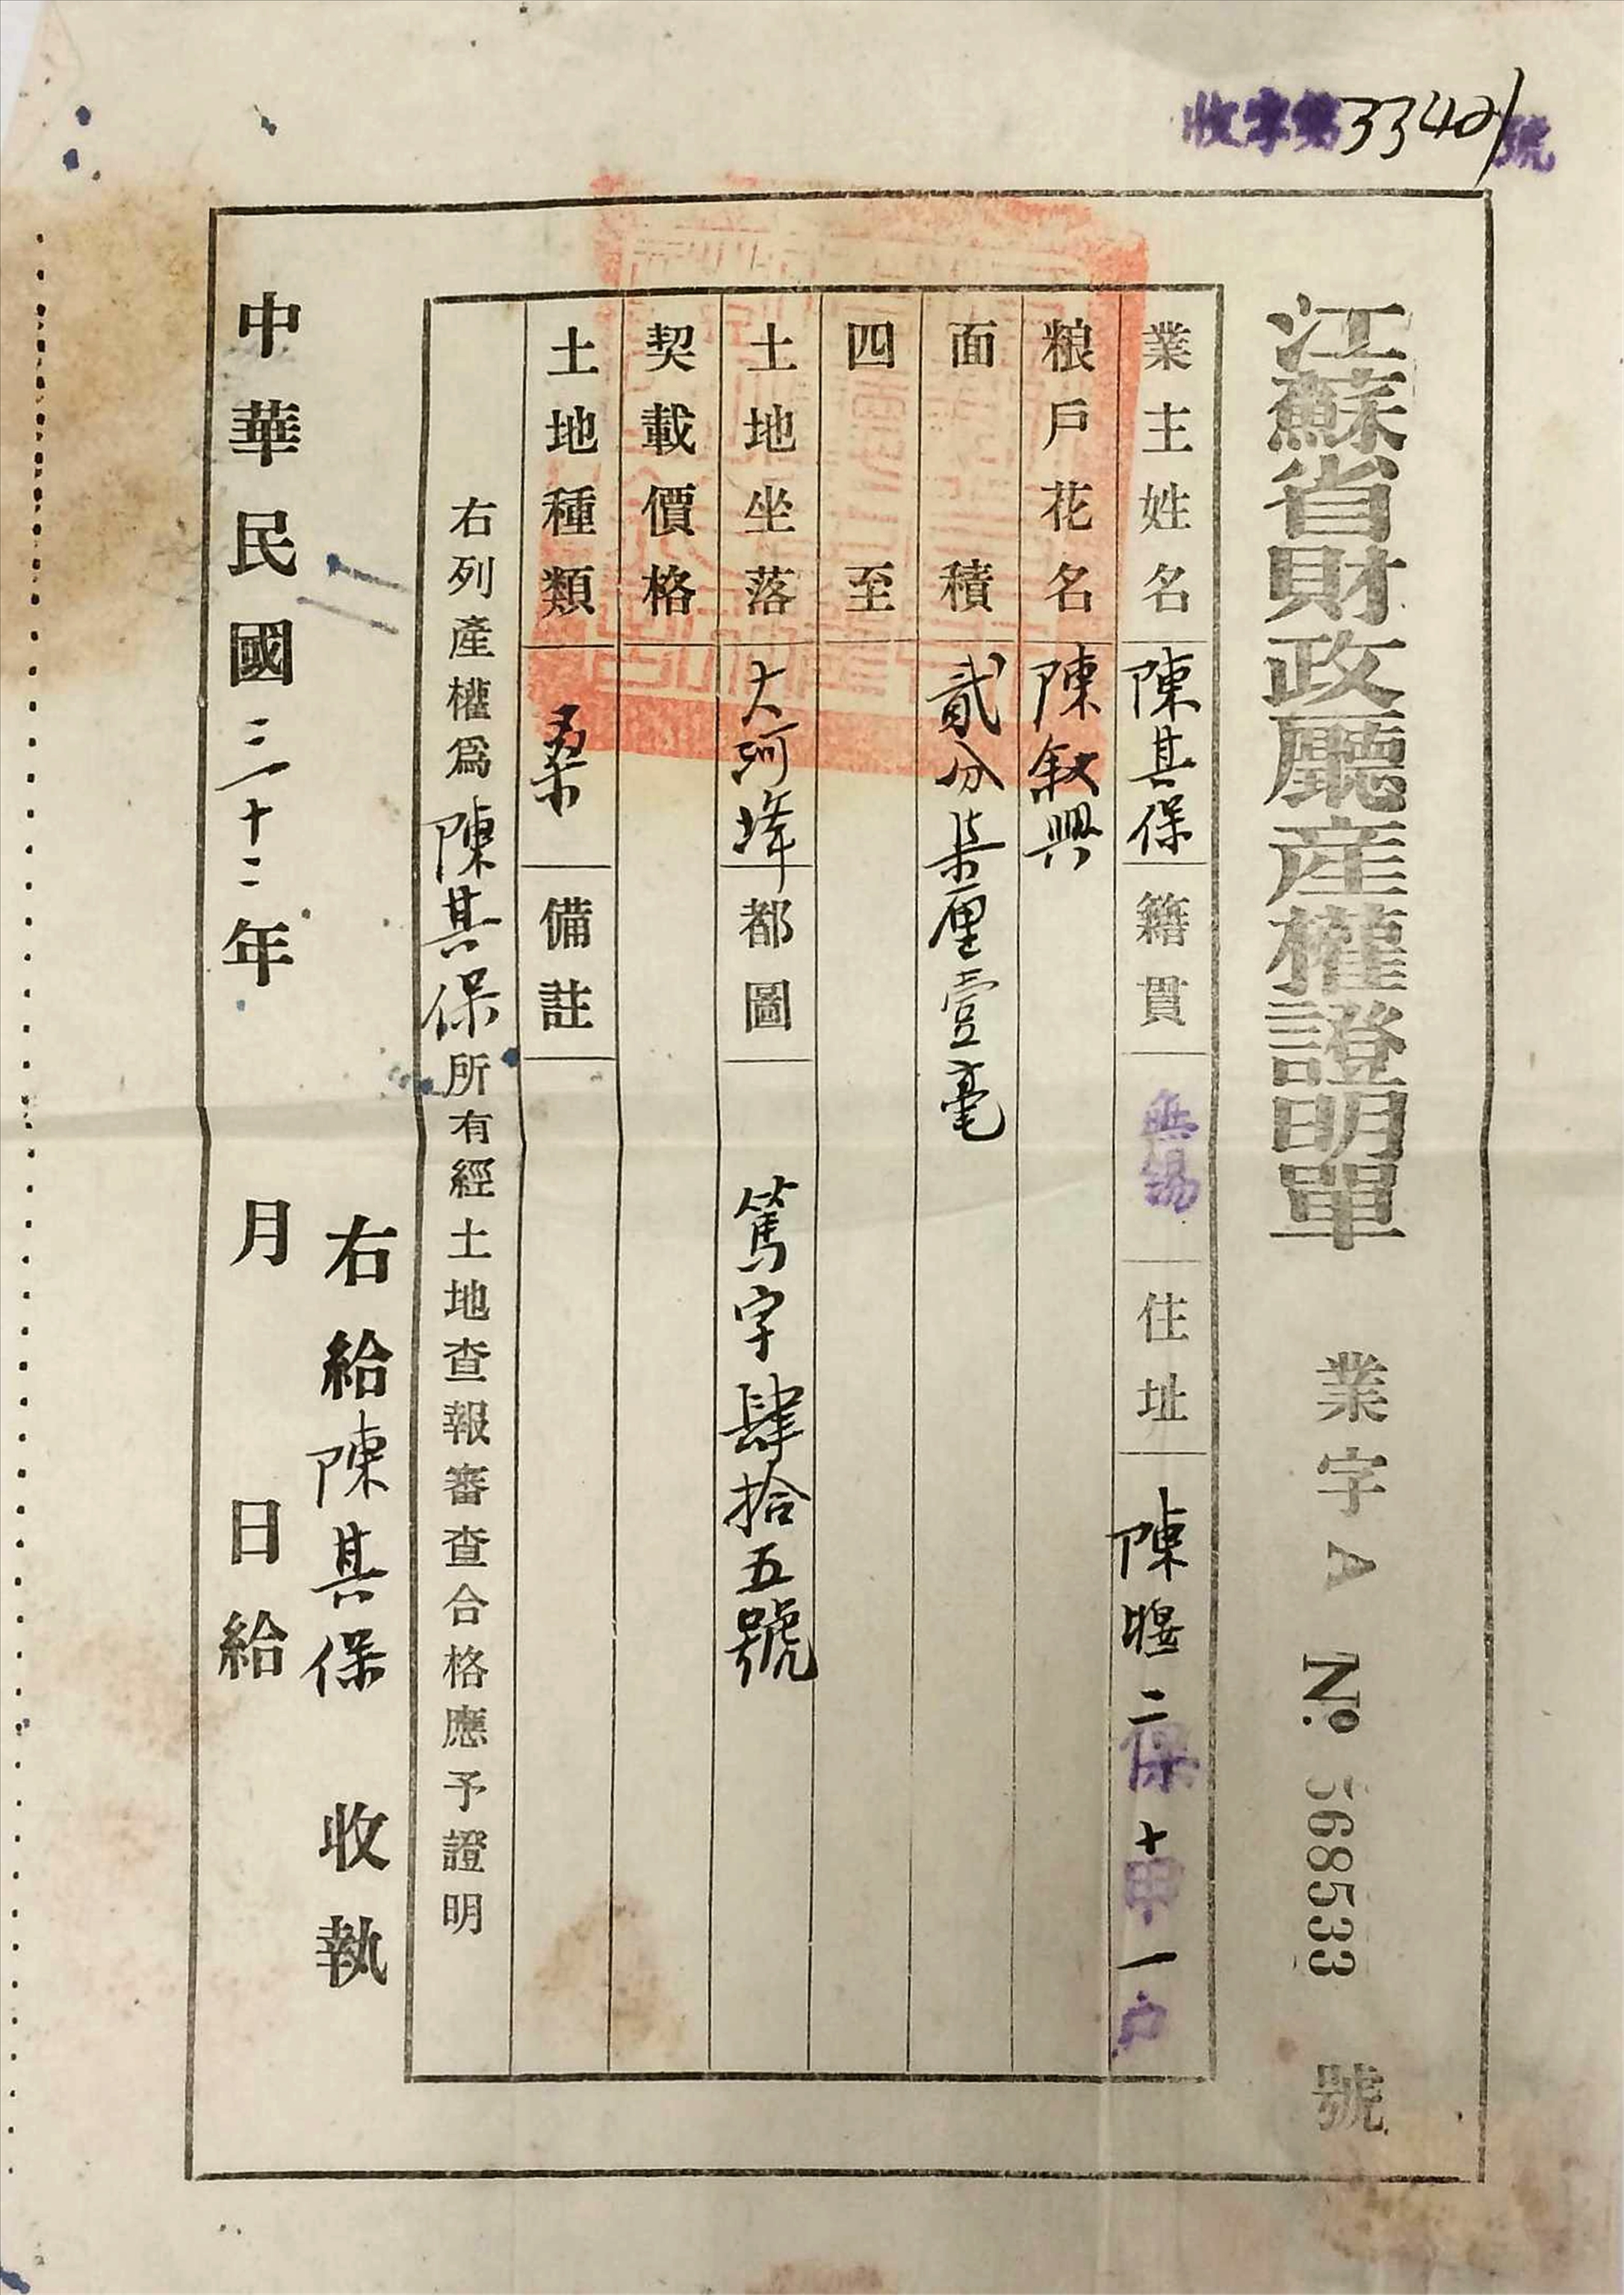 收字第33421號
江蘇省財政廳産權證明單 業字A № 568533 號
業主姓名 陳其保 籍貫 無錫 住址 陳墅二保十甲一户
粮戶花名 陳叙興
面積 貳分柒厘壹毫
四至
土地坐落 大河 都圖 篤字肆拾五號
契載價格
土地種類 桑 備註
右列產權爲陳其保所有經土地查報審查合格應予證明
右給陳其保 收執
中華民國三十二年 月 日給